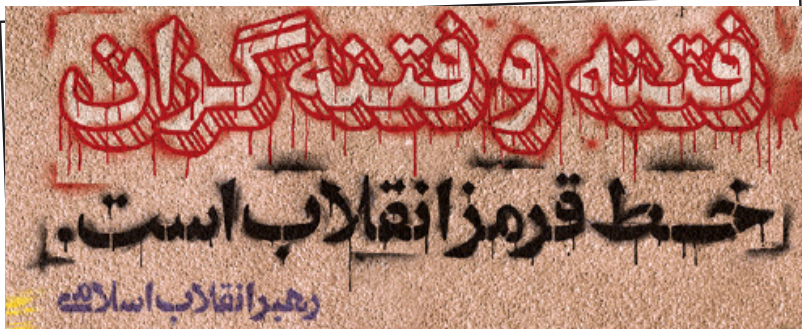 فتنه و فتنه گران
خط قرمز انقلاب است.
رهبر انقلاب اسلامی